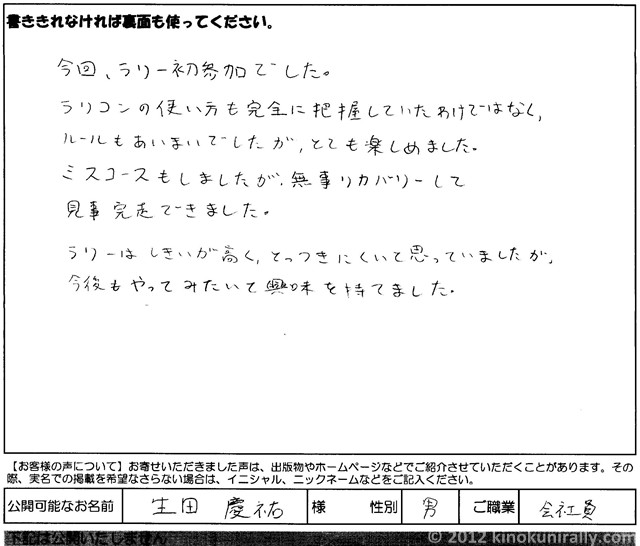 書ききれなければ裏面も使ってください。
今回、ラリー初参加でした。
ラリコンの使い方も完全に把握していたわけではなく、
ルールもあいまいでしたが、とても楽しめました。
ミスコースもしましたが、無事リカバリーして
見事完走できました。
ラリーはしきいが高く、とっつきにくいと思っていましたが、
今後もやってみたいと興味を持てました。
【お客様の声について】お寄せいただきました声は、出版物やホームページなどでご紹介させていただくことがあります。その
際、実名での掲載を希望なさらない場合は、イニシャル、ニックネームなどをご記入ください。
公開可能なお名前 生田 慶祐 様 性別 男 ご職業 会社員
下記は公開いたしません
© 2012 kinokunirally.com